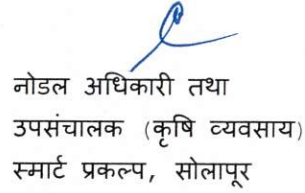 नोडल अधिकारी तथा
उपसंचालक (कृषि व्यवसाय)
स्मार्ट प्रकल्प, सोलापूर